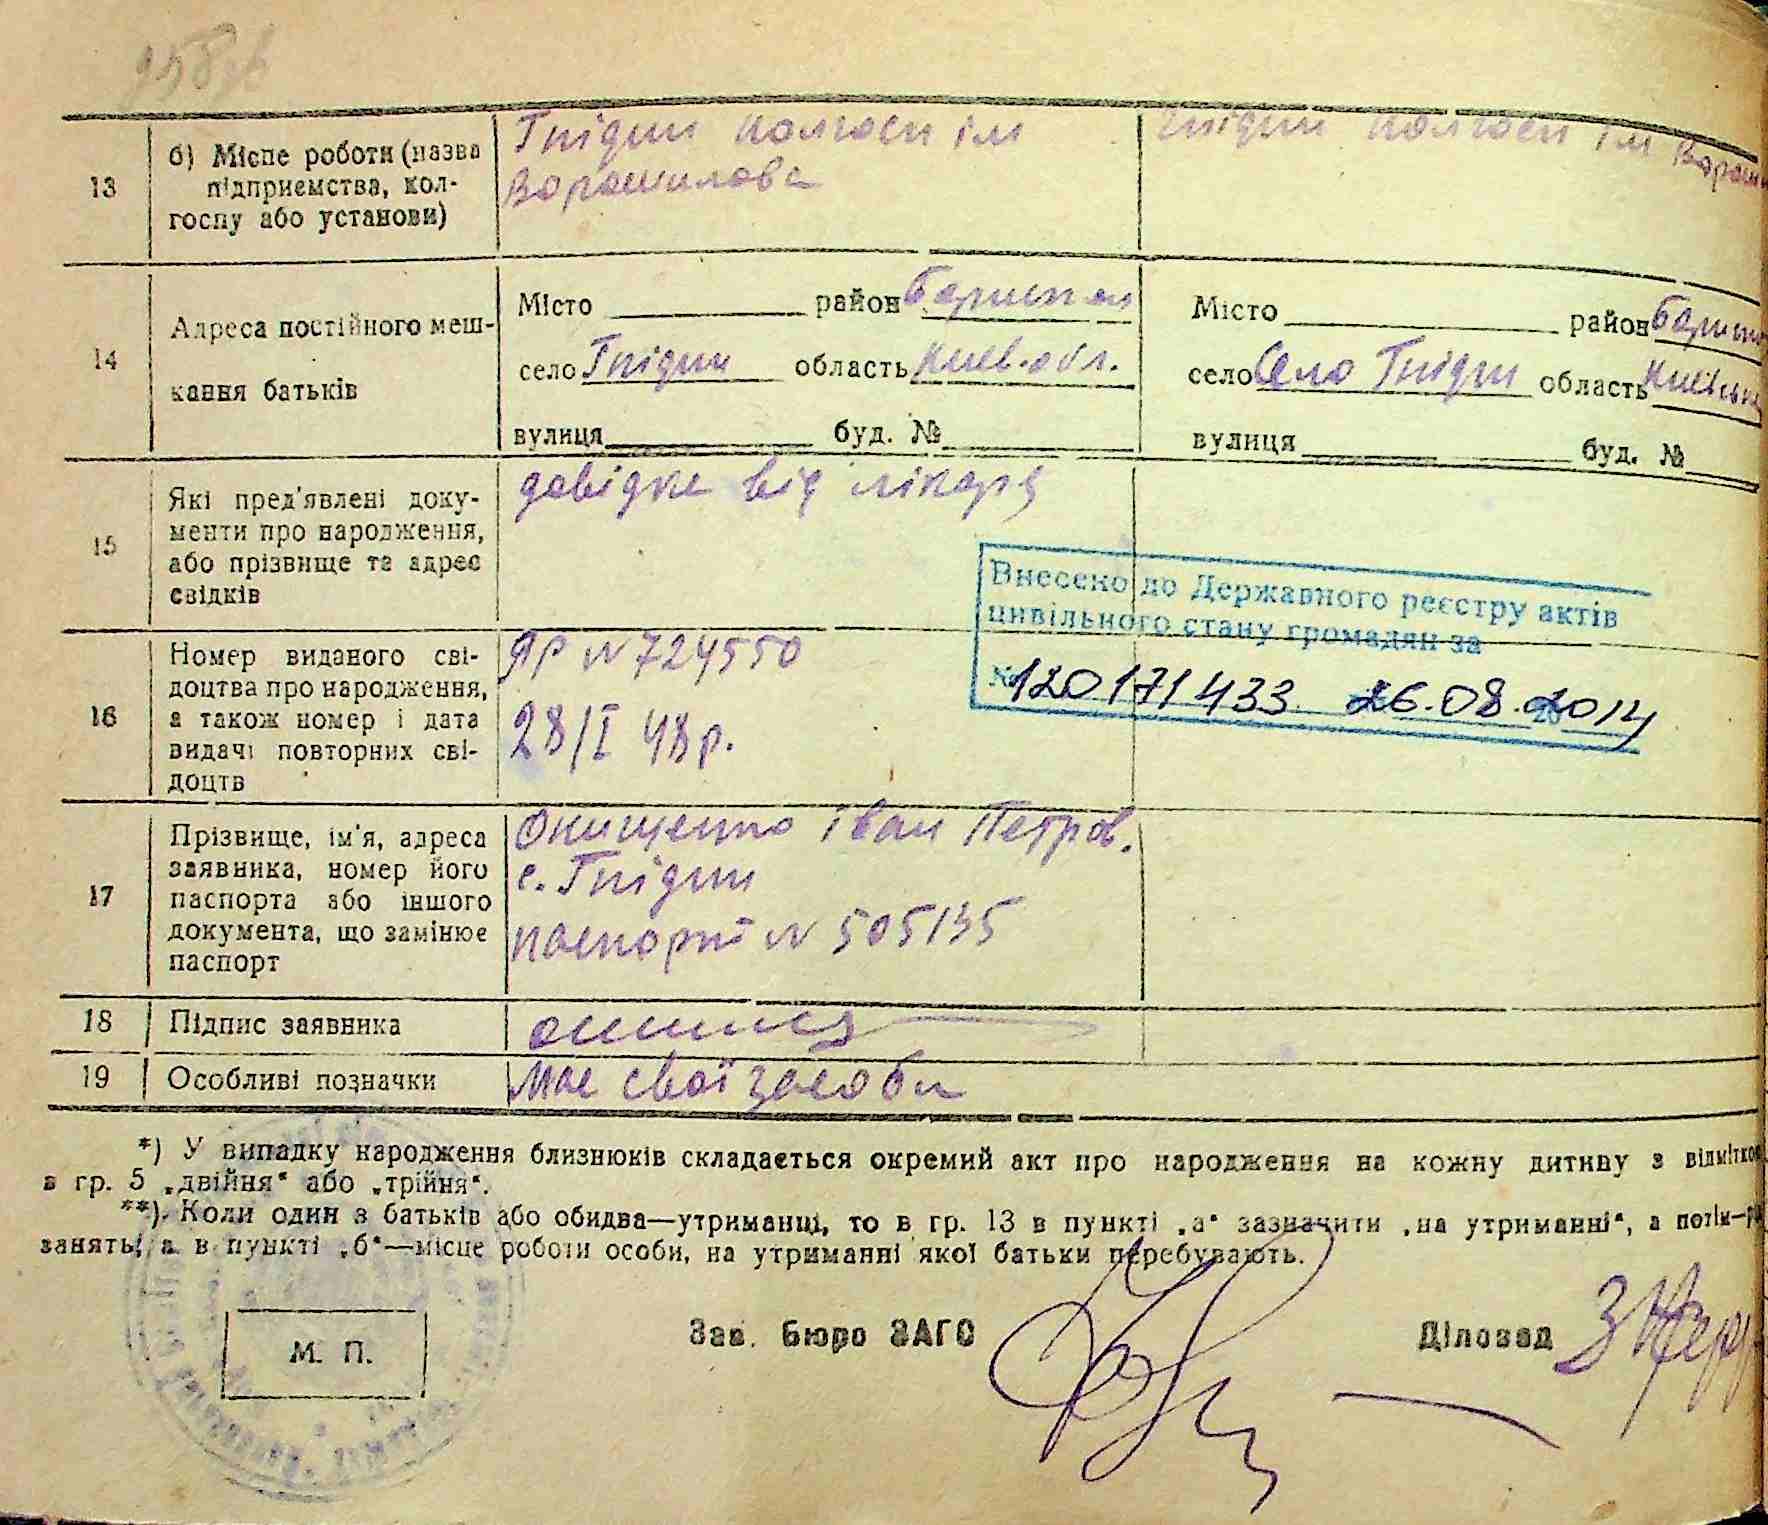 13
б) Місце роботи (назва
підприємства, кол-
госпу або установи)
Гнідин колгосп ім
Ворошилова
Гнідин колгосп ім
14
Адреса постійного меш-
кання батьків
Місто район Бориспол
село Гнідин область Киев. обл.
вулиця буд. №
Місто район
село Село Гнідин область Київська
вулиця буд. №
15
Які пред'явлені доку-
менти про народження,
або прізвище та адрес
свідків
довідка від лікаря
Внесено до Державного реєстру актів
цивільного стану громадян за
№ 120171433 26.08.2014
16
Номер виданого сві-
доцтва про народження,
а також номер і дата
видачі повторних сві-
доцтв
ЯР N 724550
28/I 48р.
17
Прізвище, ім'я, адреса
заявника, номер його
паспорта або іншого
документа, що замінює
паспорт
Онищенко Іван Петров.
с. Гнідин
паспорт N 505135
18
Підпис заявника
19
Особливі позначки
має свої засоби
*) У випадку народження близнюків складається окремий акт про народження на кожну дитину з відміткою
в гр. 5 „двійня“ або „трійня“.
**) Коли один з батьків або обидва—утриманці, то в гр. 13 в пункті „а“ зазначити „на утриманні“, а потім—
занять, а в пункті „б“—місце роботи особи, на утриманні якої батьки перебувають.
М. П.
Зав. Бюро ЗАГС
Діловод